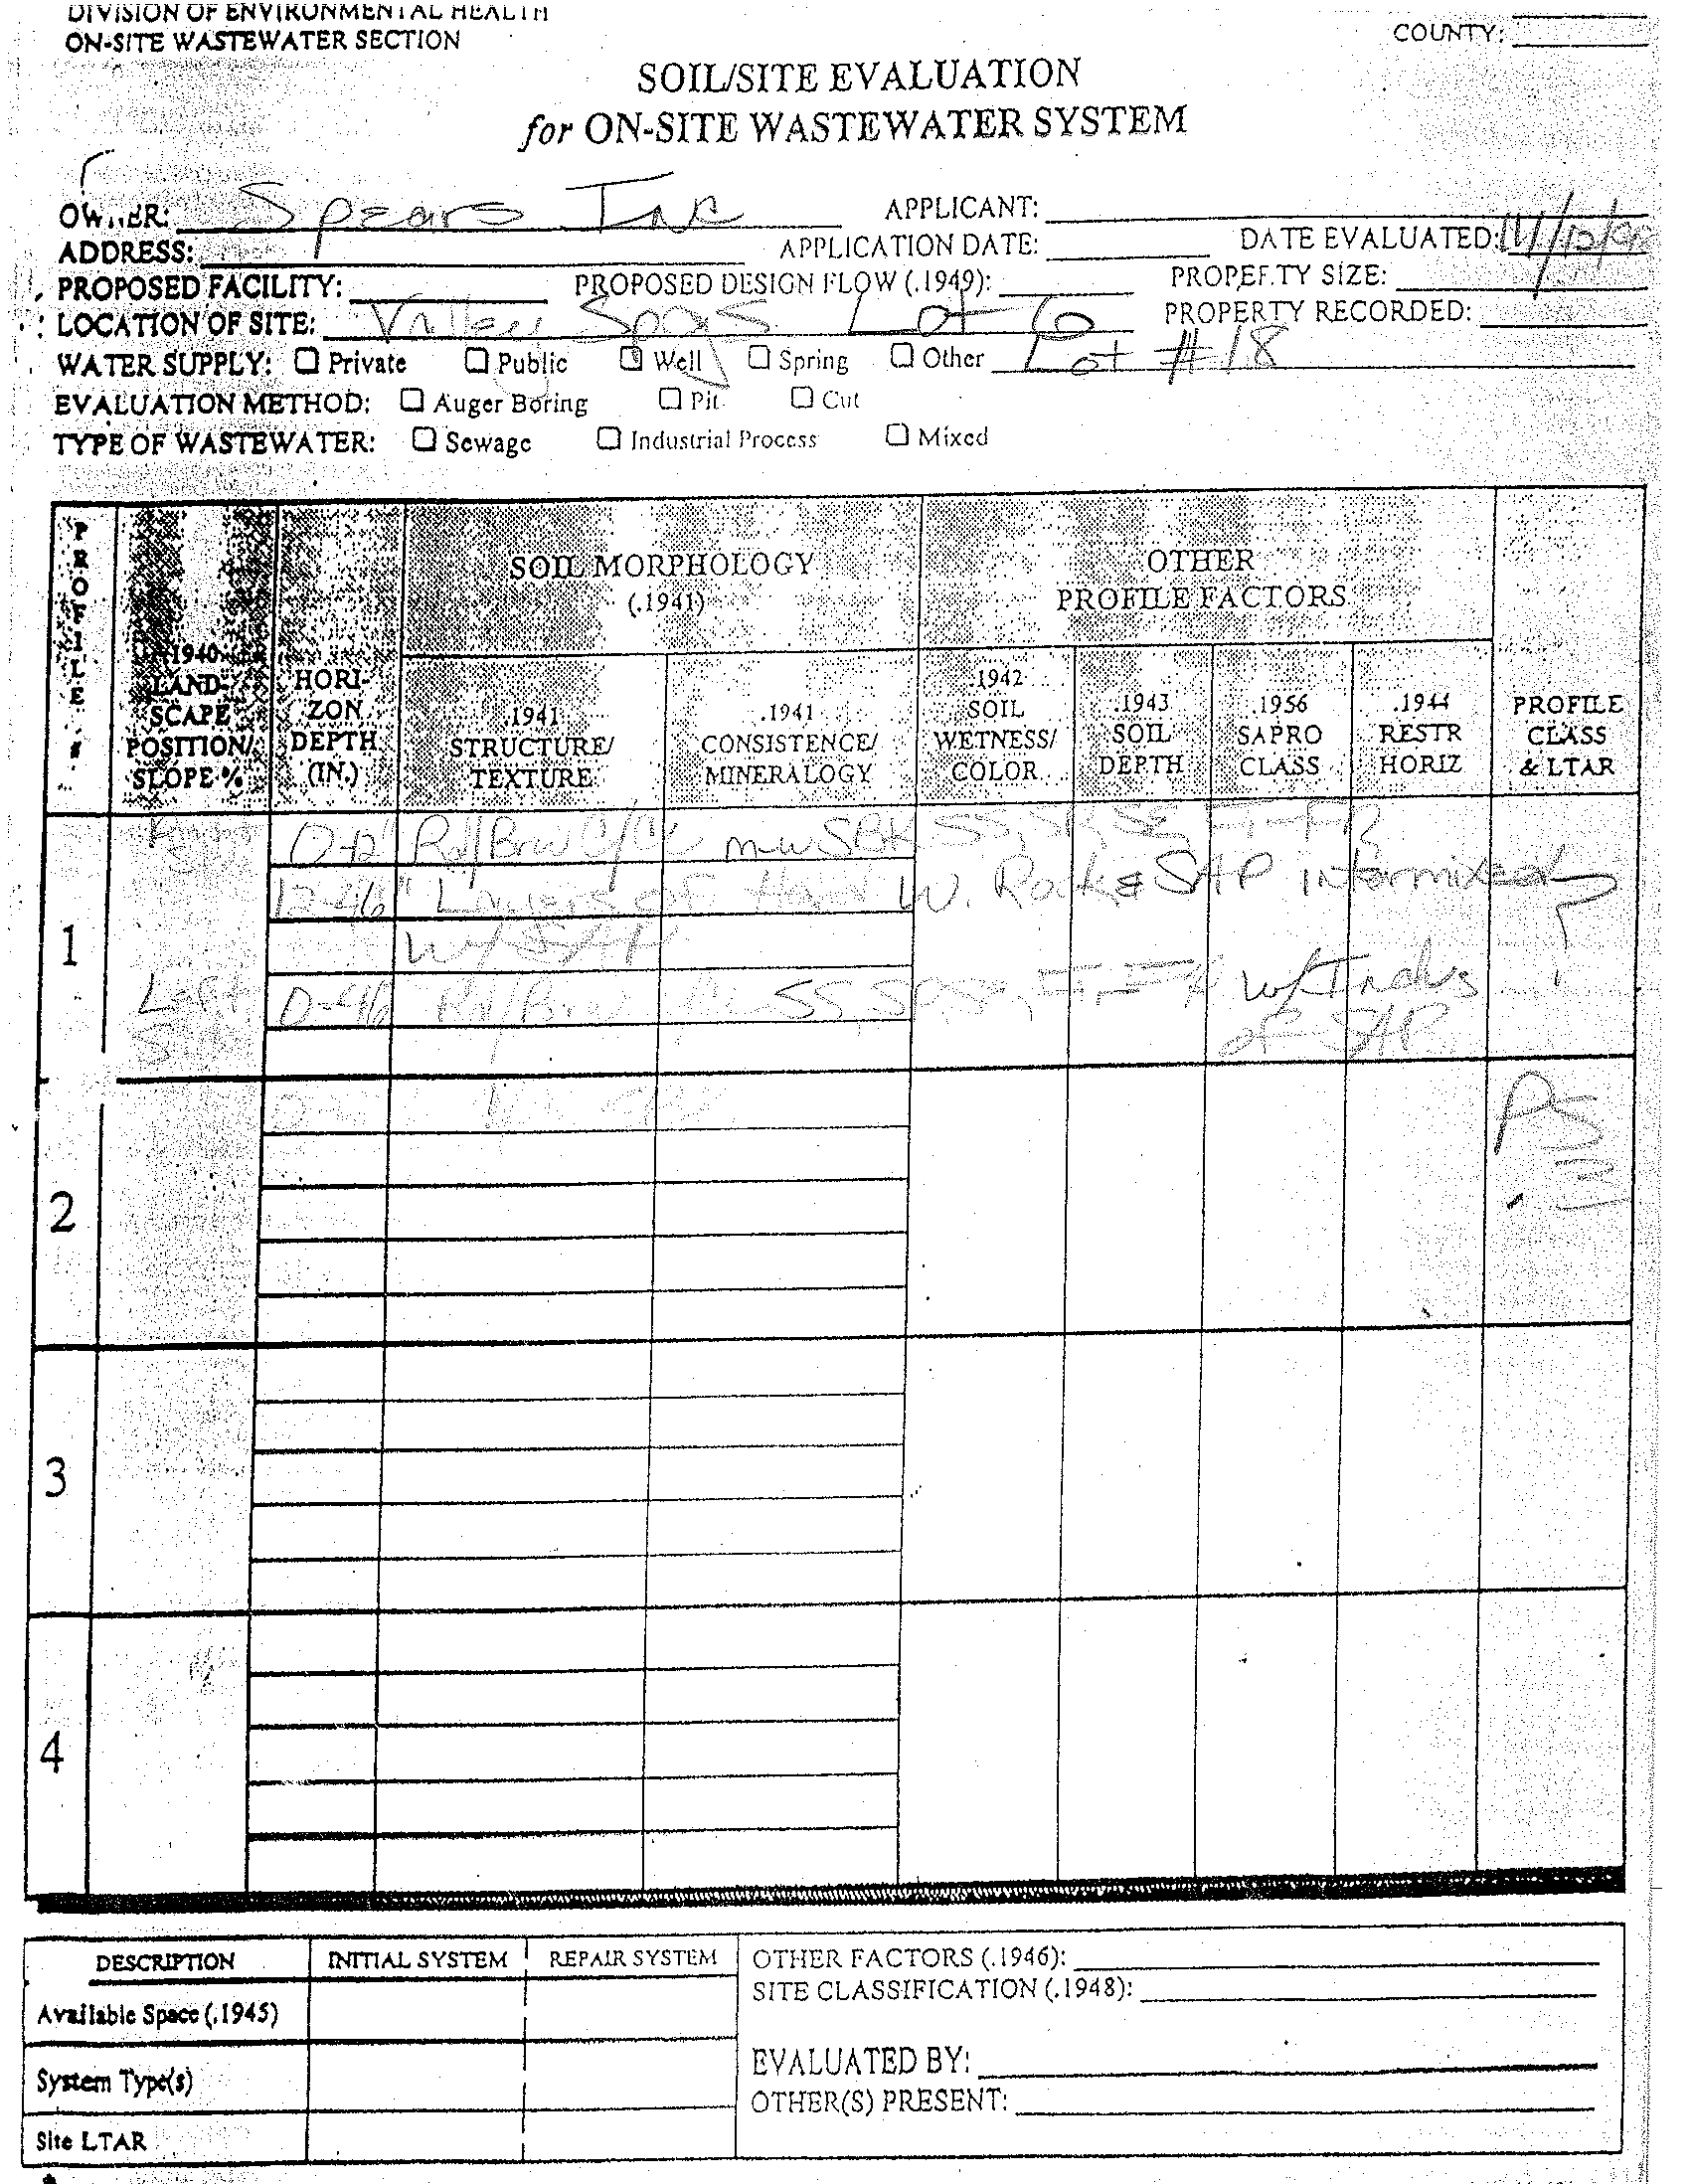 DIVISION OF ENVIRONMENTAL HEALTH
ON-SITE WASTEWATER SECTION
COUNTY:
SOIL/SITE EVALUATION
for ON-SITE WASTEWATER SYSTEM
OWNER: Spears Inc APPLICANT:
ADDRESS: APPLICATION DATE: DATE EVALUATED:
PROPOSED FACILITY: PROPOSED DESIGN FLOW (.1949): PROPERTY SIZE:
LOCATION OF SITE: Valley Spgs Lot 6 PROPERTY RECORDED:
WATER SUPPLY: Private Public Well Spring Other Lot #18
EVALUATION METHOD: Auger Boring Pit Cut
TYPE OF WASTEWATER: Sewage Industrial Process Mixed
PROFILE #
.1940 LAND-SCAPE POSITION/ SLOPE %
HORI-ZON DEPTH (IN.)
SOIL MORPHOLOGY
(.1941)
OTHER
PROFILE FACTORS
.1941 STRUCTURE/ TEXTURE
.1941 CONSISTENCE/ MINERALOGY
.1942 SOIL WETNESS/ COLOR
.1943 SOIL DEPTH
.1956 SAPRO CLASS
.1944 RESTR HORIZ
PROFILE CLASS & LTAR
0-12" Rd/Brw C/CL m-w SBK SS, SP, SE, FI-FR
12-46" Layers of Hard W. Rock & SAP intermixed
w/ SAP
1
Left 0-46 Rd/Brw SS, SP, SE, FI-FR w/ Indus
Side of SAP
PS
2
3
4
DESCRIPTION INITIAL SYSTEM REPAIR SYSTEM OTHER FACTORS (.1946):
SITE CLASSIFICATION (.1948):
Available Space (.1945)
EVALUATED BY:
System Type(s)
OTHER(S) PRESENT:
Site LTAR